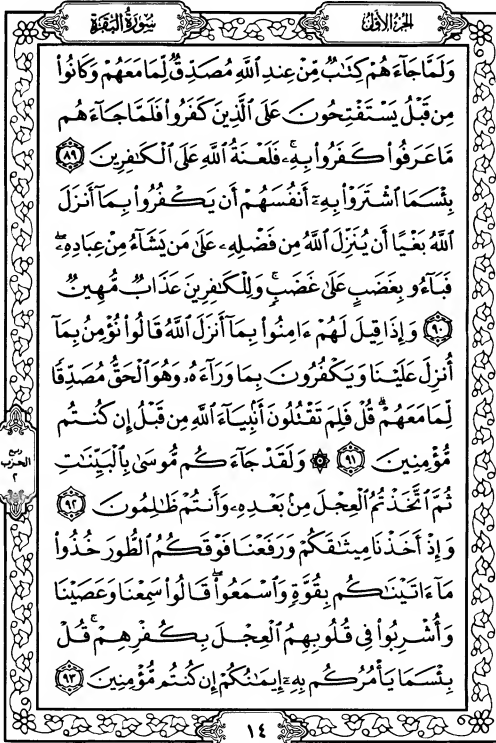 سُورَةُ البَقَرَةِ
الجُزْءُ الأَوَّلُ
وَلَمَّا جَآءَهُمْ كِتَٰبٌ مِّنْ عِندِ ٱللَّهِ مُصَدِّقٌ لِّمَا مَعَهُمْ وَكَانُوا۟
مِن قَبْلُ يَسْتَفْتِحُونَ عَلَى ٱلَّذِينَ كَفَرُوا۟ فَلَمَّا جَآءَهُم
مَّا عَرَفُوا۟ كَفَرُوا۟ بِهِۦۚ فَلَعْنَةُ ٱللَّهِ عَلَى ٱلْكَٰفِرِينَ ٨٩
بِئْسَمَا ٱشْتَرَوْا۟ بِهِۦٓ أَنفُسَهُمْ أَن يَكْفُرُوا۟ بِمَآ أَنزَلَ
ٱللَّهُ بَغْيًا أَن يُنَزِّلَ ٱللَّهُ مِن فَضْلِهِۦ عَلَىٰ مَن يَشَآءُ مِنْ عِبَادِهِۦۖ
فَبَآءُو بِغَضَبٍ عَلَىٰ غَضَبٍۚ وَلِلْكَٰفِرِينَ عَذَابٌ مُّهِينٌ
٩٠ وَإِذَا قِيلَ لَهُمْ ءَامِنُوا۟ بِمَآ أَنزَلَ ٱللَّهُ قَالُوا۟ نُؤْمِنُ بِمَآ
أُنزِلَ عَلَيْنَا وَيَكْفُرُونَ بِمَا وَرَآءَهُۥ وَهُوَ ٱلْحَقُّ مُصَدِّقًا
لِّمَا مَعَهُمْۗ قُلْ فَلِمَ تَقْتُلُونَ أَنۢبِيَآءَ ٱللَّهِ مِن قَبْلُ إِن كُنتُم
مُّؤْمِنِينَ ٩١ ۞ وَلَقَدْ جَآءَكُم مُّوسَىٰ بِٱلْبَيِّنَٰتِ
ثُمَّ ٱتَّخَذْتُمُ ٱلْعِجْلَ مِنۢ بَعْدِهِۦ وَأَنتُمْ ظَٰلِمُونَ ٩٢
وَإِذْ أَخَذْنَا مِيثَٰقَكُمْ وَرَفَعْنَا فَوْقَكُمُ ٱلطُّورَ خُذُوا۟
مَآ ءَاتَيْنَٰكُم بِقُوَّةٍ وَٱسْمَعُوا۟ۖ قَالُوا۟ سَمِعْنَا وَعَصَيْنَا
وَأُشْرِبُوا۟ فِى قُلُوبِهِمُ ٱلْعِجْلَ بِكُفْرِهِمْۚ قُلْ
بِئْسَمَا يَأْمُرُكُم بِهِۦٓ إِيمَٰنُكُمْ إِن كُنتُم مُّؤْمِنِينَ ٩٣
ربع
الحزب
٢
١٤